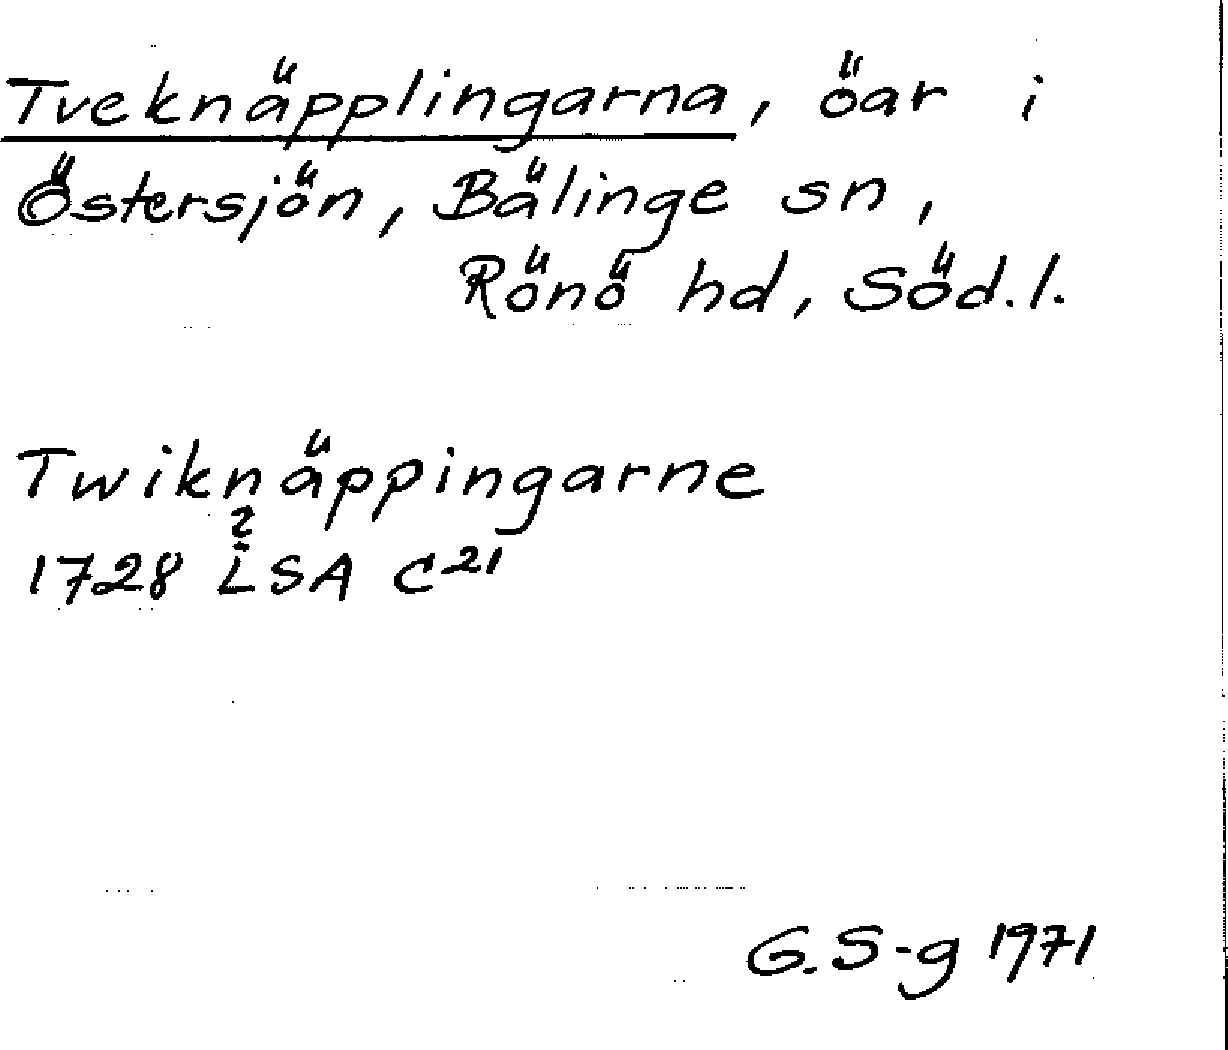 Tveknäpplingarna, öar i
Östersjön, Bälinge sn,
Rönö hd, Söd.l.
Twiknäppingarne
?
1728 LSA C21
G. S-g 1971